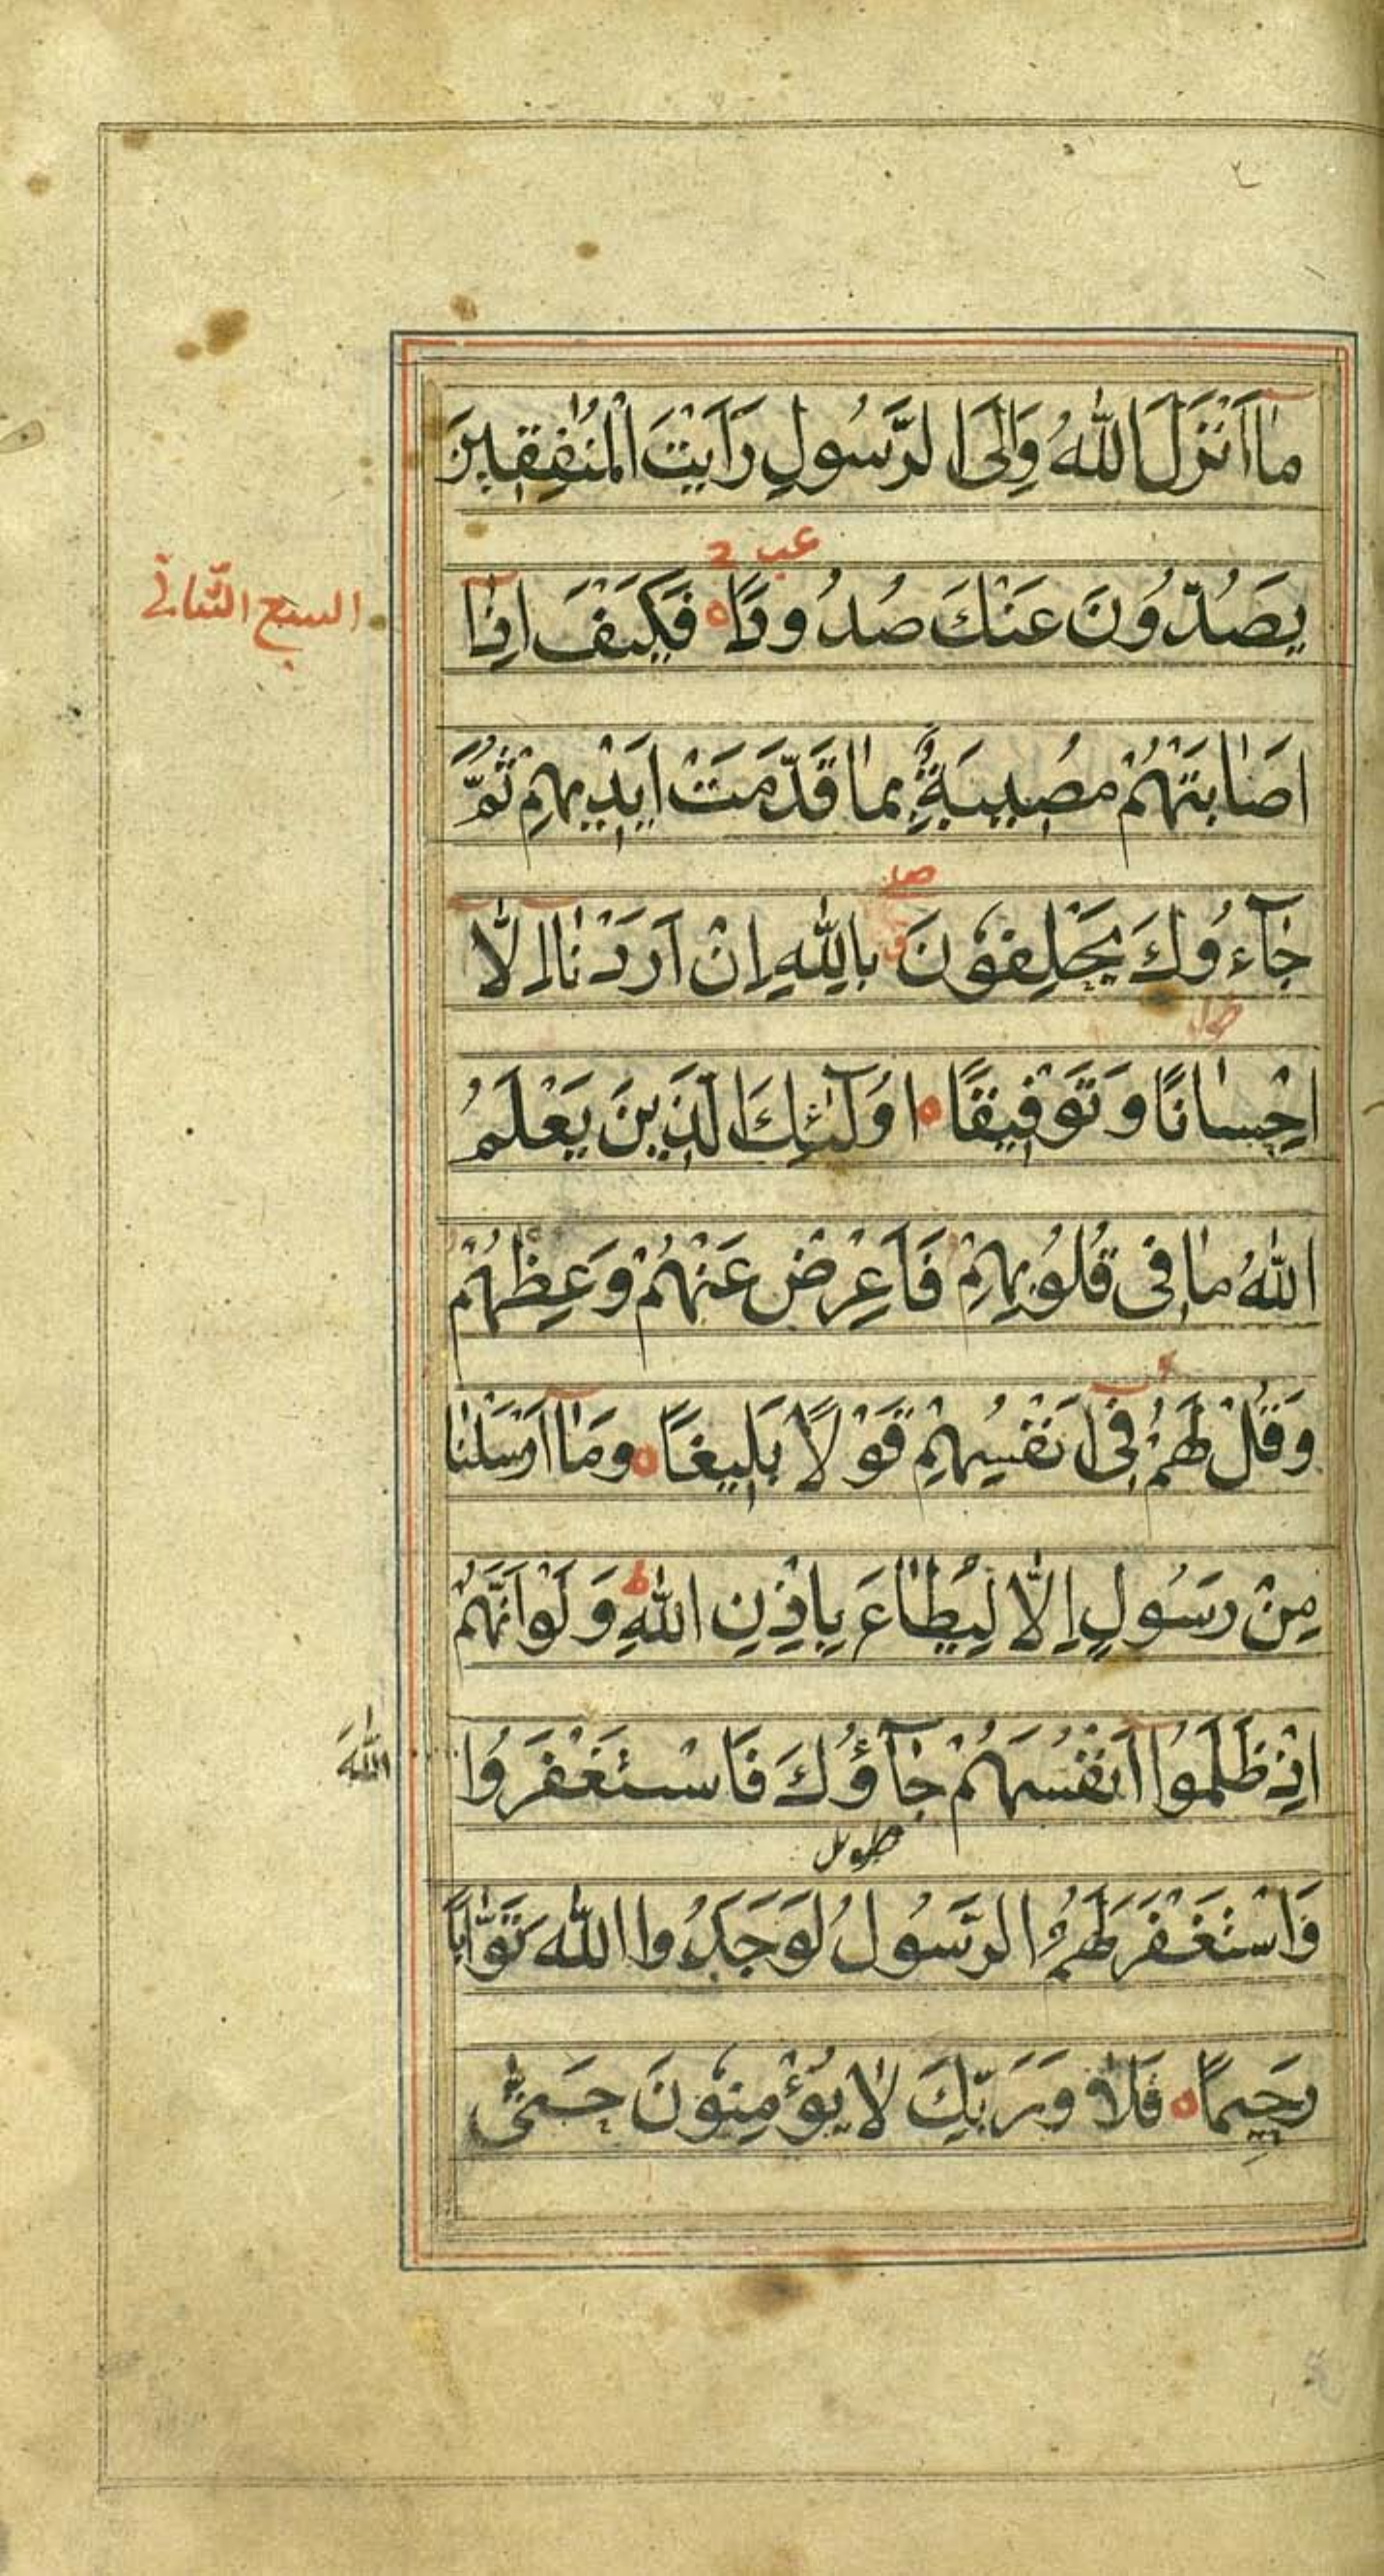 مَآ اَنْزَلَ اللّٰهُ وَاِلَى الرَّسُولِ رَاَيْتَ الْمُنٰفِقِينَ
عب
يَصُدُّونَ عَنْكَ صُدُودًا ه فَكَيْفَ اِذٰٓا
السبع الثانى
اَصٰابَتْهُمْ مُصِيبَةٌ بِمٰا قَدَّمَتْ اَيْدِيهِمْ ثُمَّ
جٰٓاءُوكَ يَحْلِفُونَ بِاللّٰهِ اِنْ اَرَدْنٰٓا اِلّٰٓا
اِحْسٰانًا وَتَوْفِيقًا ه اُولٰٓئِكَ الَّذِينَ يَعْلَمُ
اللّٰهُ مٰا فِى قُلُوبِهِمْ فَاَعْرِضْ عَنْهُمْ وَعِظْهُمْ
وَقُلْ لَهُمْ فِىٓ اَنْفُسِهِمْ قَوْلًا بَلِيغًا ه وَمَآ اَرْسَلْنٰا
مِنْ رَسُولٍ اِلّٰا لِيُطٰاعَ بِاِذْنِ اللّٰهِ ط وَلَوْ اَنَّهُمْ
اِذْ ظَلَمُوٓا اَنْفُسَهُمْ جٰٓاؤُكَ فَاسْتَغْفَرُوا
اللّٰهَ
وَاسْتَغْفَرَ لَهُمُ الرَّسُولُ لَوَجَدُوا اللّٰهَ تَوّٰابًا
رَحِيمًا ه فَلٰا وَرَبِّكَ لٰا يُؤْمِنُونَ حَتّٰى